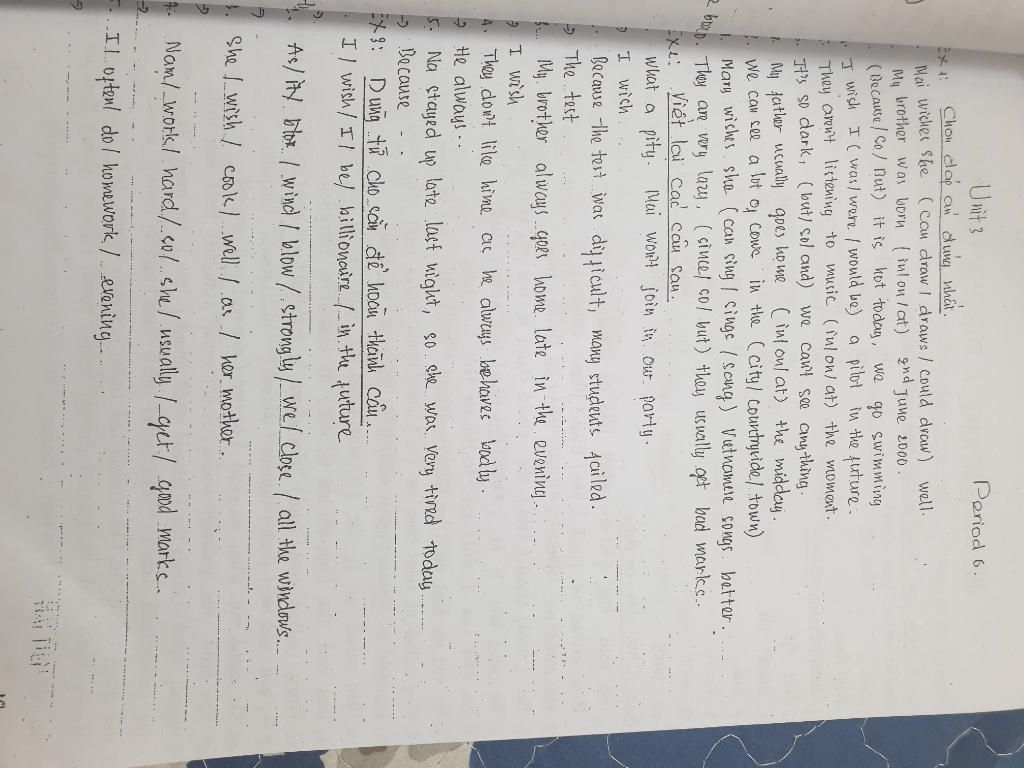 Unit 3
Period 6.
Ex 1: Chọn đáp án đúng nhất.
Mai wishes she (can draw / draws / could draw) well.
My brother was born (in/on/at) 2nd June 2000.
(Because / So / But) it is hot today, we go swimming
I wish I (was / were / would be) a pilot in the future.
They aren't listening to music (in/on/at) the moment.
It's so dark, (but/so/and) we can't see anything.
My father usually goes home (in/on/at) the midday.
We can see a lot of cows in the (city/countryside/town)
Mary wishes she (can sing / sings / sang) Vietnamese songs better.
They are very lazy, (since/so/but) they usually get bad marks.
Ex: Viết lại các câu sau.
What a pity. Mai won't join in our party.
→ I wish
Because the test was difficult, many students failed.
→ The test
3. My brother always goes home late in the evening.
→ I wish
4. They don't like hime as he always behaves badly.
→ He always..
5. Na stayed up late last night, so she was very tired today
→ Because
Ex 3: Dùng từ cho sẵn để hoàn thành câu.
I / wish / I / be / billionaire / in the future
→
As / it / / wind / blow / strongly / we / close / all the windows.
→
She / wish / cook / well / as / her mother.
→
Nam / works / hard / so / she / usually / get / good marks.
→
I / often / do / homework / evening.
→